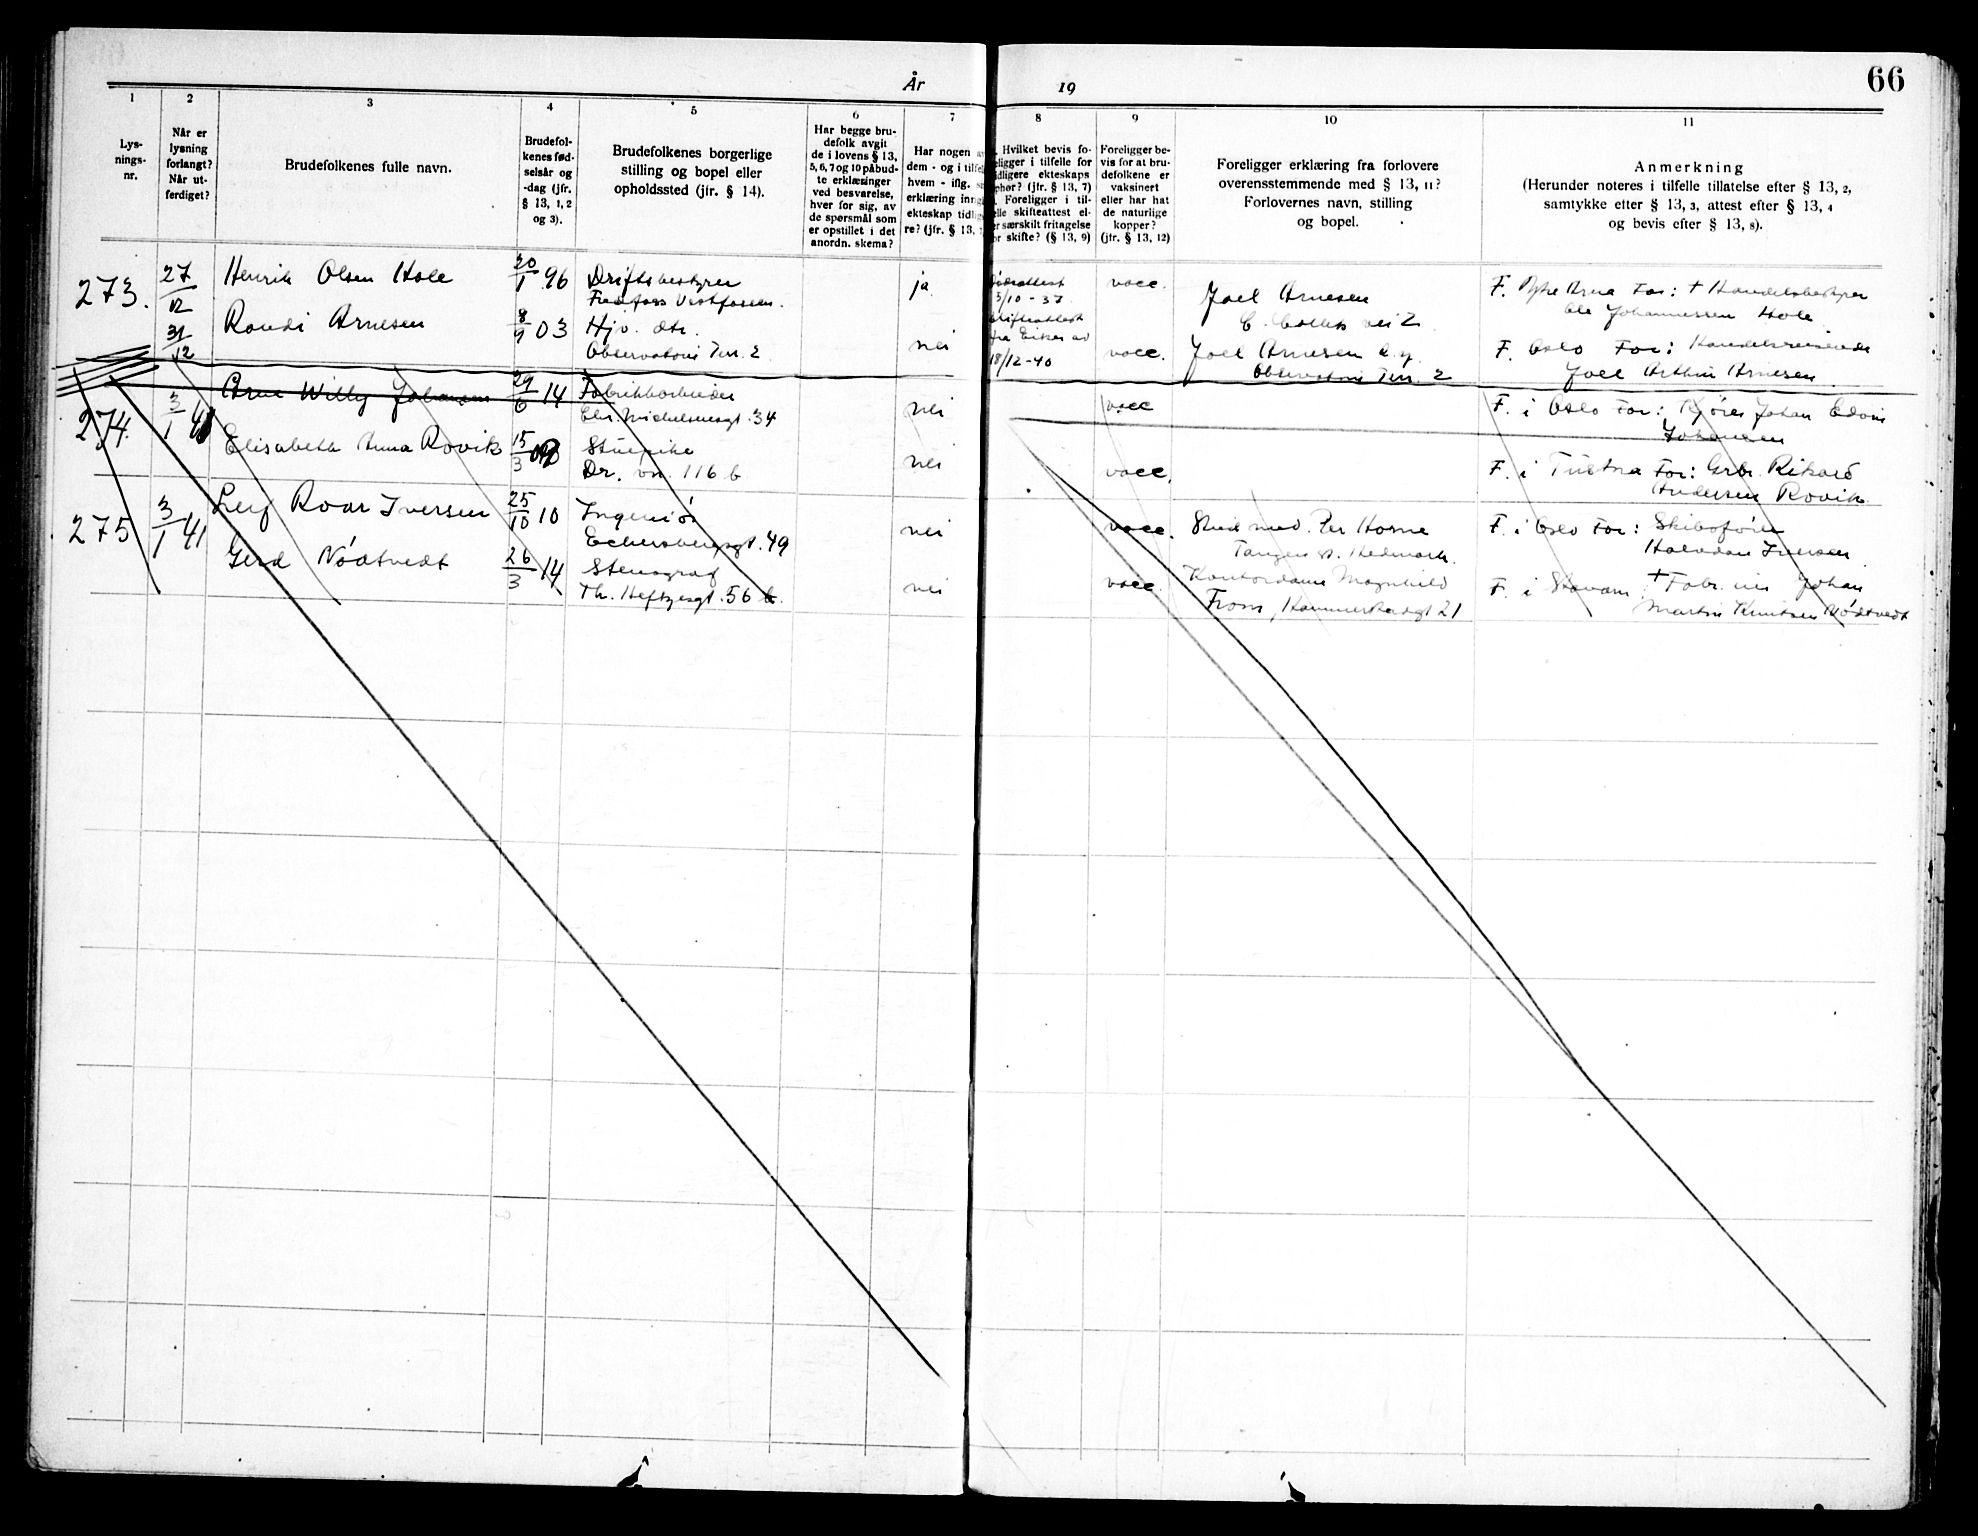 År 19
66
1
2
3
4
5
6
7
8
9
10
11
Lys-
nings-
nr.
Når er
lysning
forlangt?
Når ut-
ferdiget?
Brudefolkenes fulle navn.
Brudefol-
kenes fød-
selsår og
-dag (jfr.
§ 13, 1, 2
og 3).
Brudefolkenes borgerlige
stilling og bopel eller
opholdssted (jfr. § 14).
Har begge bru-
defolk avgit
de i lovens § 13,
5, 6, 7 og 10 påbud-
te erklæringer
ved besvarelse,
hver for sig, av
de spørsmål som
er opstillet i det
anordn. skema?
Har nogen
dem - og i
hvem - iflg.
erklæring
ekteskap
re? (jfr. § 13,
Hvilket bevis fo-
religger i tilfelle for
tidligere ekteskaps
ophør? (jfr. § 13, 7)
Foreligger i til-
felle skifteattest el-
ler særskilt fritagelse
for skifte? (§ 13, 9)
Foreligger be-
vis for at bru-
defolkene er
vaksinert
eller har hat
de naturlige
kopper?
(jfr. § 13, 12)
Foreligger erklæring fra forlovere
overensstemmende med § 13, 11?
Forlovernes navn, stilling
og bopel.
Anmerkning
(Herunder noteres i tilfelle tillatelse efter § 13, 2,
samtykke efter § 13, 3, attest efter § 13, 4
og bevis efter § 13, 8).
273.
27/12
31/12
Henrik Olsen Hole
20/1 96
Driftsbestyrer
Vestfossen.
ja
5/10-37
vacc.
Joel Arnesen
C. Colletts vei 2
F. For: † Handelsbestyrer
Ole Johannessen Hole
Randi Arnesen
8/9 03
Hjv. dtr.
Observatorie Terr. 2
nei
Skifteattest
fra Eiker av
18/12-40
vacc.
Joel Arnesen d.y.
Observatorie Terr. 2
F. Oslo For: Handelsreisende
Joel Arthur Arnesen
274.
3/1 41
Arne Willy Johansen
29/6 14
Fabrikkarbeider
Chr. Michelsensgt. 34
nei
vacc
F. i Oslo For: Kjører Johan Edvin
Johansen
Elisabeth Anna Rovik
15/3
Stuepike
Dr. vn. 116 b
nei
vacc.
F. i Tustna For: Grbr. Rikard
Andersen Rovik
275
3/1 41
Leif Roar Iversen
25/10 10
Ingeniør
Eckersbergsgt. 49
nei
vacc.
Stud. med. Per Horne
Tangen st. Hedmark.
F. i Oslo For: Skibsfører
Halvdan Iversen
Gerd Nödtvedt
26/3 14
Stenograf
Th. Heftyesgt. 56 b.
nei
vacc.
Kontordame Magnhild
From, Kammerherregt 21
F. i Stavern † Fabr. eier Johan
Martin Knutsen Nödtvedt